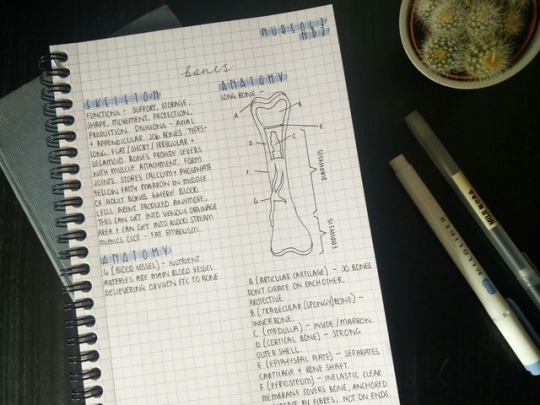 MUSCOSK
MD7
bones
SKELETON
FUNCTIONS - SUPPORT, STORAGE,
SHAPE, MOVEMENT, PROTECTION,
PRODUCTION. DIVISIONS - AXIAL
+ APPENDICULAR. 206 BONES. TYPES-
LONG/FLAT/SHORT/IRREGULAR +
SESAMOID. BONES PROVIDE LEVERS
WITH MUSCLE ATTACHMENT, FORM
JOINTS. STORES CALCIUM + PHOSPHATE
YELLOW FATTY MARROW IN MIDDLE
OF ADULT BONES WHERE BLOOD
CELLS ARENT PRODUCED ANYMORE,
THIS CAN GET INTO VENOUS DRAINAGE
AREA + CAN GET INTO BLOOD STREAM
MIMICS CLOT - FAT EMBOLISM.
ANATOMY
G (BLOOD VESSEL) - NUTRIENT
ARTERIES ARE MAIN BLOOD VESSEL
DELIEVERING OXYGEN ETC TO BONE.
ANATOMY
LONG BONE -
A
B
E
D
C
F
G
DIAPHYSIS
EPIPHYSIS
A (ARTICULAR CARTILAGE) - SO BONES
DON'T GRATE ON EACH OTHER.
PROTECTIVE
B (TRABECULAR (SPONGY) BONE) -
INNER BONE.
C (MEDULLA) - INSIDE/MARROW.
D (CORTICAL BONE) - STRONG
OUTER SHELL.
E (EPIPHYSEAL PLATE) - SEPARATES
CARTILAGE + BONE SHAFT.
F (PERIOSTEUM) - INELASTIC CLEAR
MEMBRANE COVERS BONE, ANCHORED
BY FIBRES, NOT ON ENDS.
MILDLINER